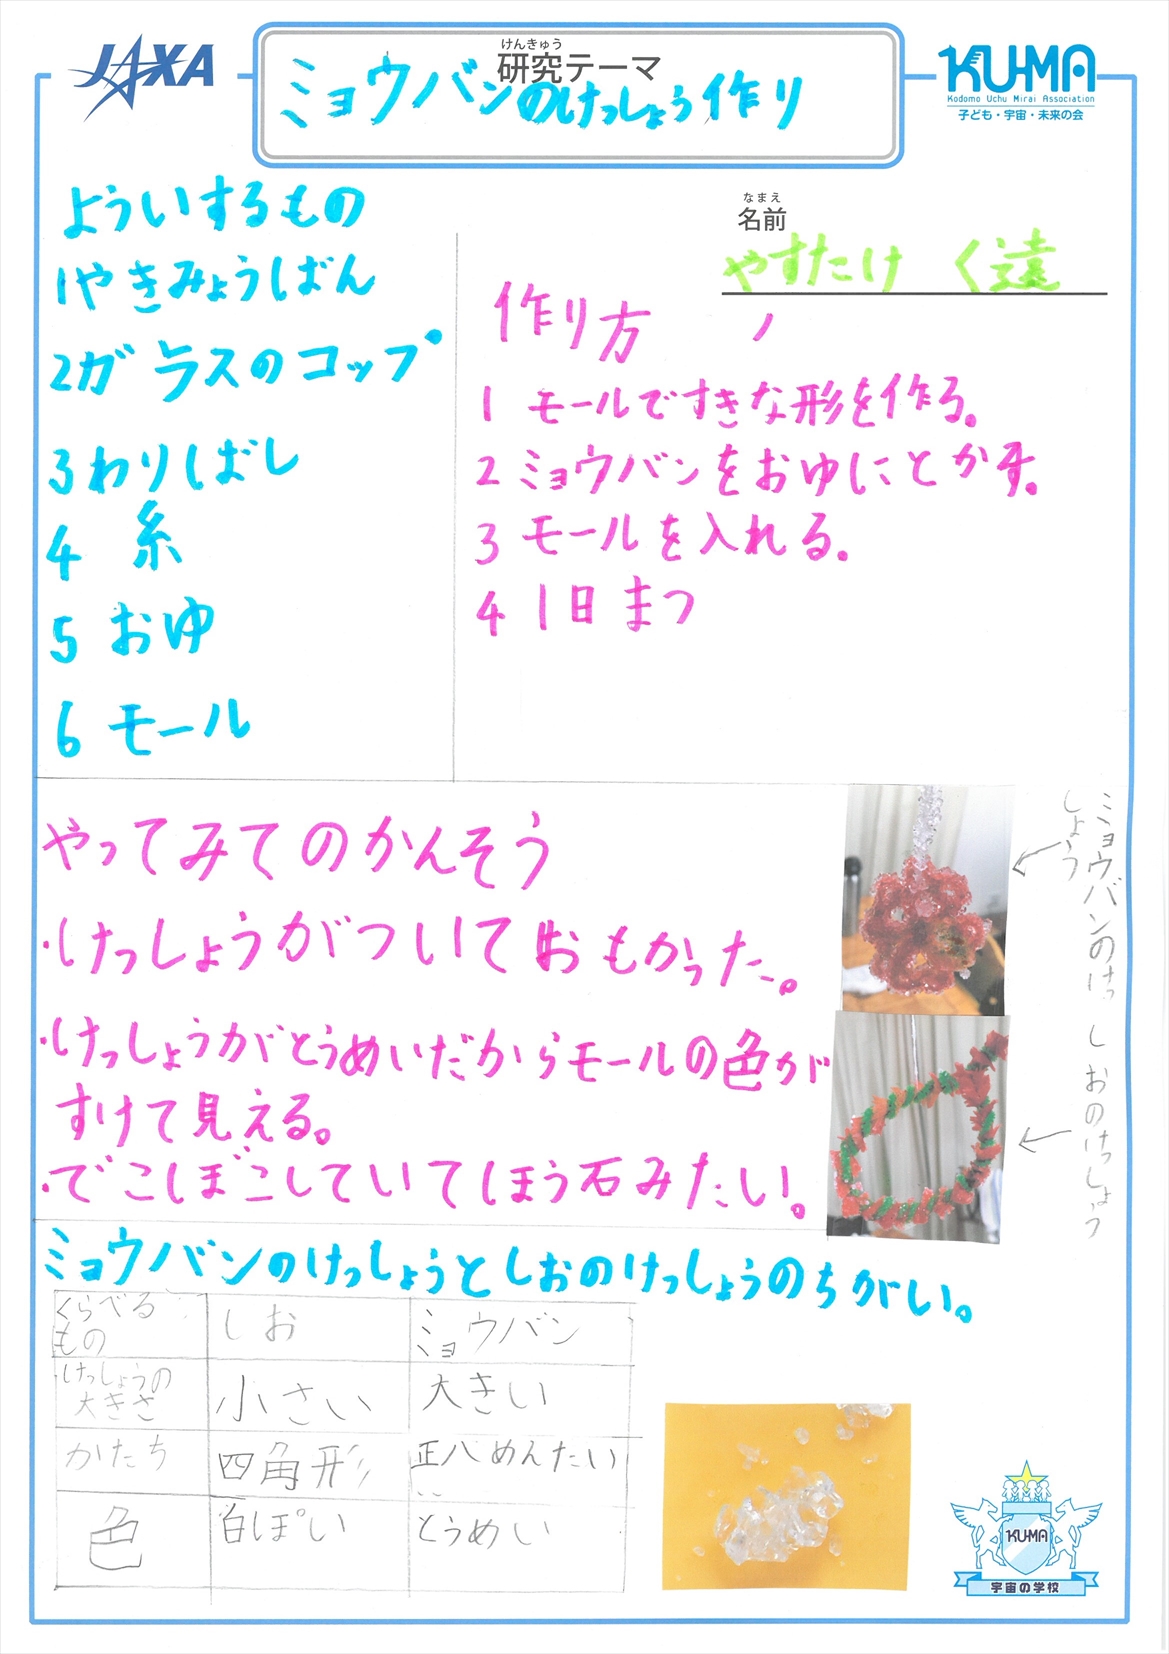 JAXA
けんきゅう
研究テーマ
ミョウバンのけっしょう作り
KU-MA
Kodomo Uchu Mirai Association
子ども・宇宙・未来の会
なまえ
名前
やすたけ く遠
よういするもの
1やきみょうばん
2ガラスのコップ
3わりばし
4 糸
5 おゆ
6 モール
作り方
1 モールですきな形を作る。
2 ミョウバンをおゆにとかす。
3 モールを入れる。
4 1日まつ
やってみてのかんそう
・けっしょうがついておもかった。
・けっしょうがとうめいだからモールの色が
すけて見える。
・でこしぼこしていてほう石みたい。
ミョウバンのけっ
しょう
しおのけっしょう
ミョウバンのけっしょうとしおのけっしょうのちがい。
くらべる
もの
しお
ミョウバン
けっしょうの
大きさ
小さい
大きい
かたち
四角形
正八めんたい
色
白ぽい
とうめい
KU-MA
宇宙の学校